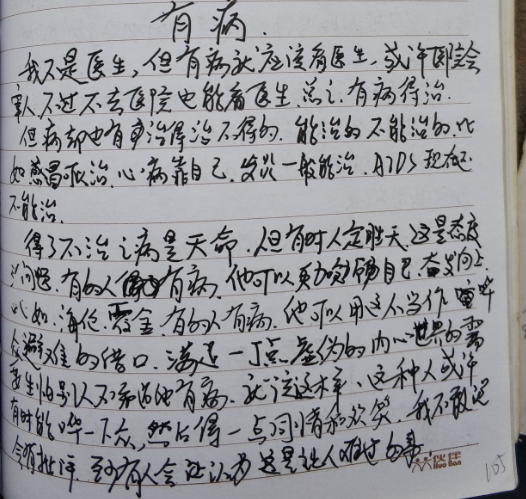 有病.
我不是医生,但有病就应该看医生,或许医院会
人,不过不去医院也能看医生,总之,有病得治.
但病却也有事治得治不得的.能治的不能治的.比
如感冒可治.心病靠自己.发炎一般能治.AIDS现在还
不能治.
得了不治之病是天命.但有时人定胜天,这是态度
问题.有的人有病.他可以更加自己.奋发向上.
比如:海伦.霍金.有的人有病.他可以用这个当作
避难的借口.满足一丁点虚伪的内心世界的需
要生怕别人不知道他有病.就该这样.这种人或许
有时能哗一下众,然后得一点同情和欢笑.我不敢说
会有批评,至少有人会认为这是让人难过的事
伙伴
Huo Ban
105